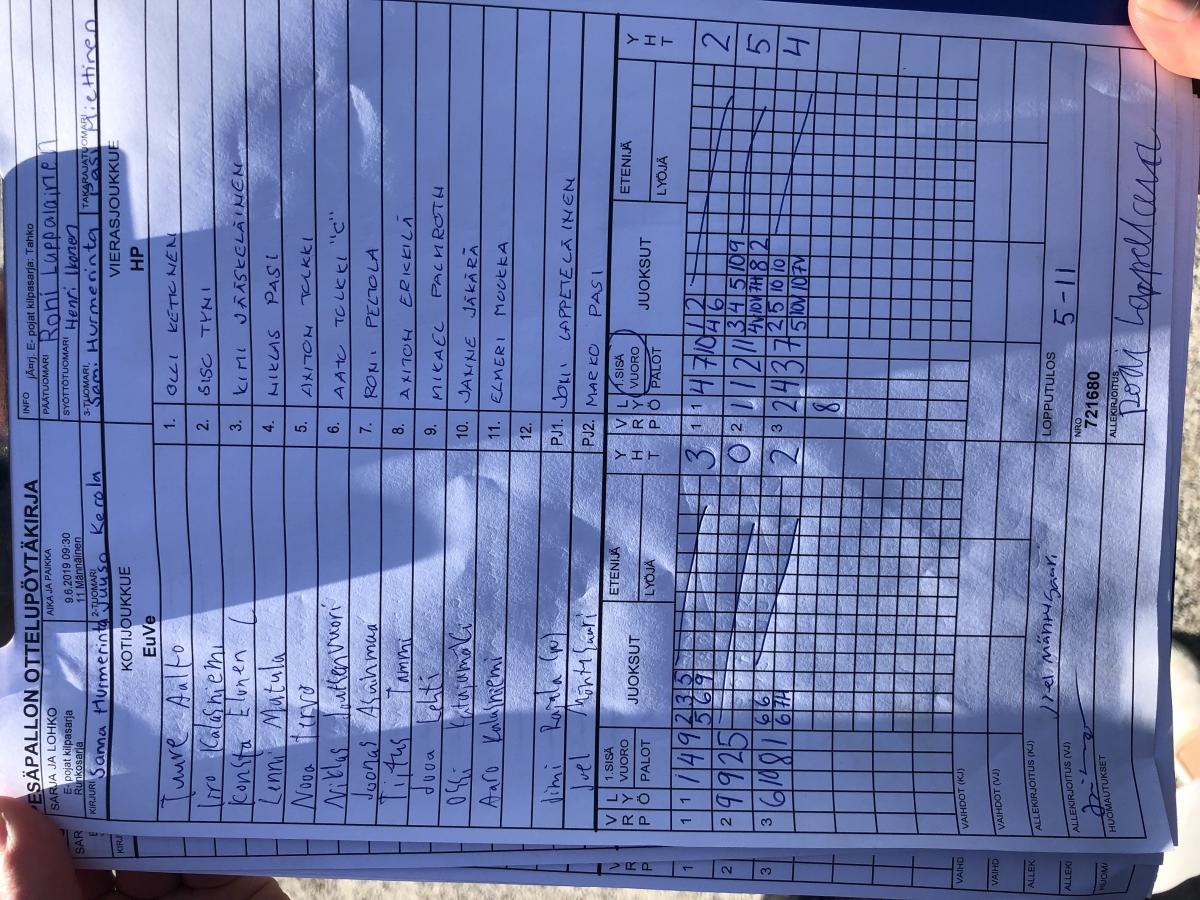 PESÄPALLON OTTELUPÖYTÄKIRJA
SARJA JA LOHKO
E-pojat kilpasarja
Runkosarja
AIKA JA PAIKKA
9.6.2019 09:30
11.Männäinen
INFO
E- pojat kilpasarja: Tahko
PÄÄTUOMARI
Roni Lappalainen
SYÖTTÖTUOMARI
Henri Ikonen
KIRJURI
Sanna Hurmerinta
2-TUOMARI
Juuso Kerola
3-TUOMARI
Sami Hurmerinta
TAKARAJATUOMARI
Pasi Miettinen
KOTIJOUKKUE
EuVe
VIERASJOUKKUE
HP
Tuure Aalto
1. OLLI KETTINEN
2. SISC TYNI
Konsta Elonen C
3. KIMI JÄÄSKELÄINEN
Lenni Matula
4. NIKLAS PASI
Nooa Tervo
5. ANTON TOLKKI
Niklas
6. AATC TOLKKI "C"
Joonas Asunmaa
7. RONI PELTOLA
Tiitus Tammi
8. ANTON ERKKILÄ
Juva Lehti
9. MIKAEL PALMROTH
10. JANNE JÄKÄRÄ
Aaro Kolvniemi
11. ELMERI MOUKKA
12.
PJ1. JONI LAPPETELÄINEN
Joel Mänty
PJ2. MARKO PASI
V R P
L Y Ö
1.SISÄ
VUORO
PALOT
JUOKSUT
ETENIJÄ
LYÖJÄ
Y H T
V R P
L Y Ö
1.SISÄ
VUORO
PALOT
JUOKSUT
ETENIJÄ
LYÖJÄ
Y H T
1 1 1 4 9 2 3 5 3
5 6 9
1 1 4 7 10 1 2 2
4 6
2 9 9 2 5 0
2 1 1 2 11 3 4 5 10 9 5
3 6 10 8 1 6 6 2
6 7H
3 2 4 3 7 2 5 10 10 4
5 10V 10 7V
8
VAIHDOT (KJ)
VAIHDOT (VJ)
ALLEKIRJOITUS (KJ)
LOPPUTULOS
5-11
ALLEKIRJOITUS (VJ)
NRO
721680
HUOMAUTUKSET
ALLEKIRJOITUS
Roni Lappalainen